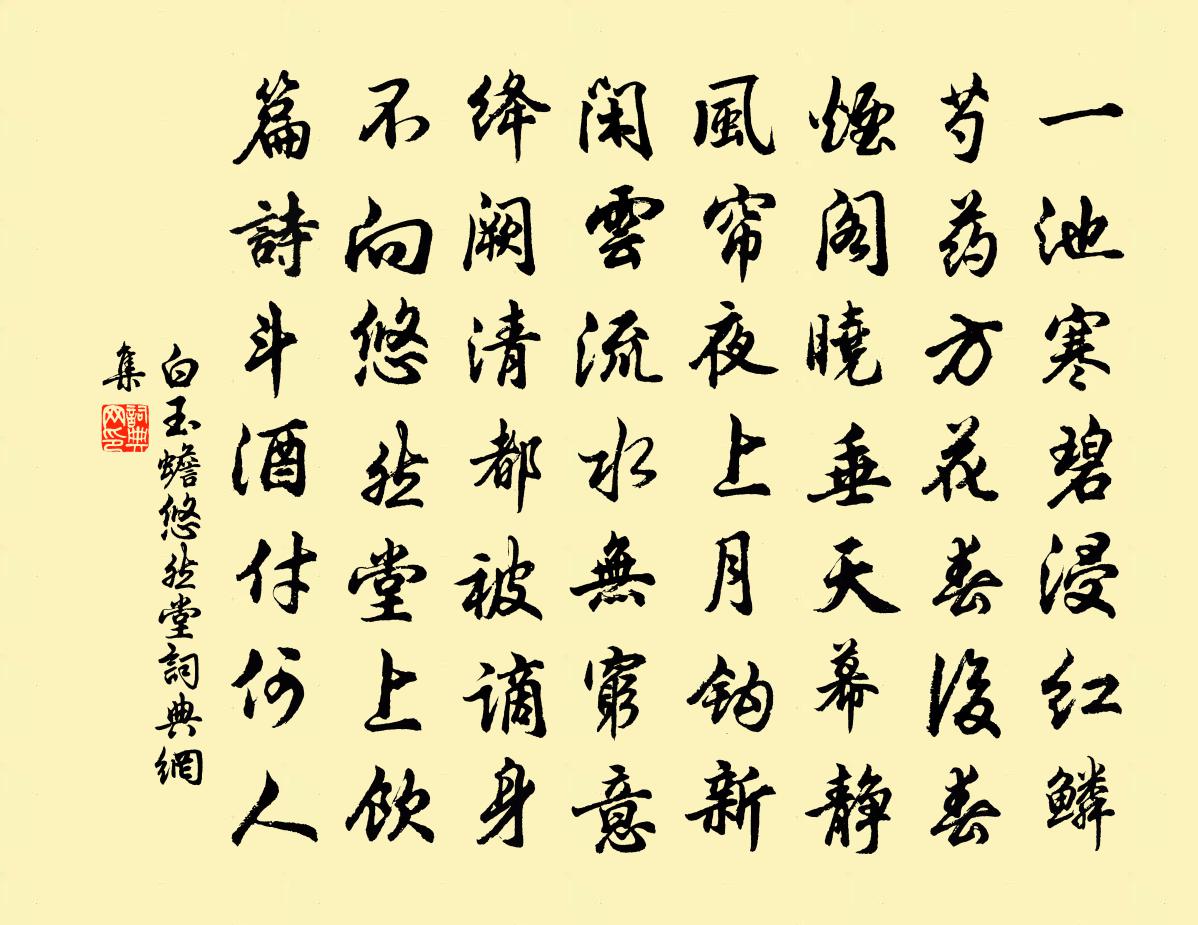 一池寒碧浸红鳞
芍药方花春后春
煙阁曉垂天幕静
風帘夜上月钩新
闲雲流水無窮意
绛阙清都被謫身
不向悠然堂上飲
篇詩斗酒付何人
白玉蟾悠然堂詞典網
集
詞典
网印